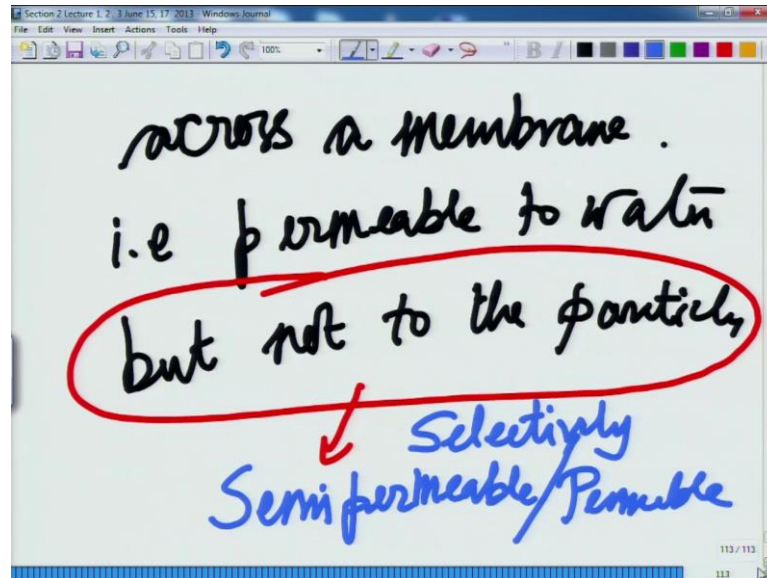 Section 2 Lecture 1, 2 , 3 June 15, 17 2013 - Windows Journal
File Edit View Insert Actions Tools Help
100% B I
across a membrane .
i.e permeable to water
but not to the particles
Selectively
Semipermeable/Permeable
113 / 113
113